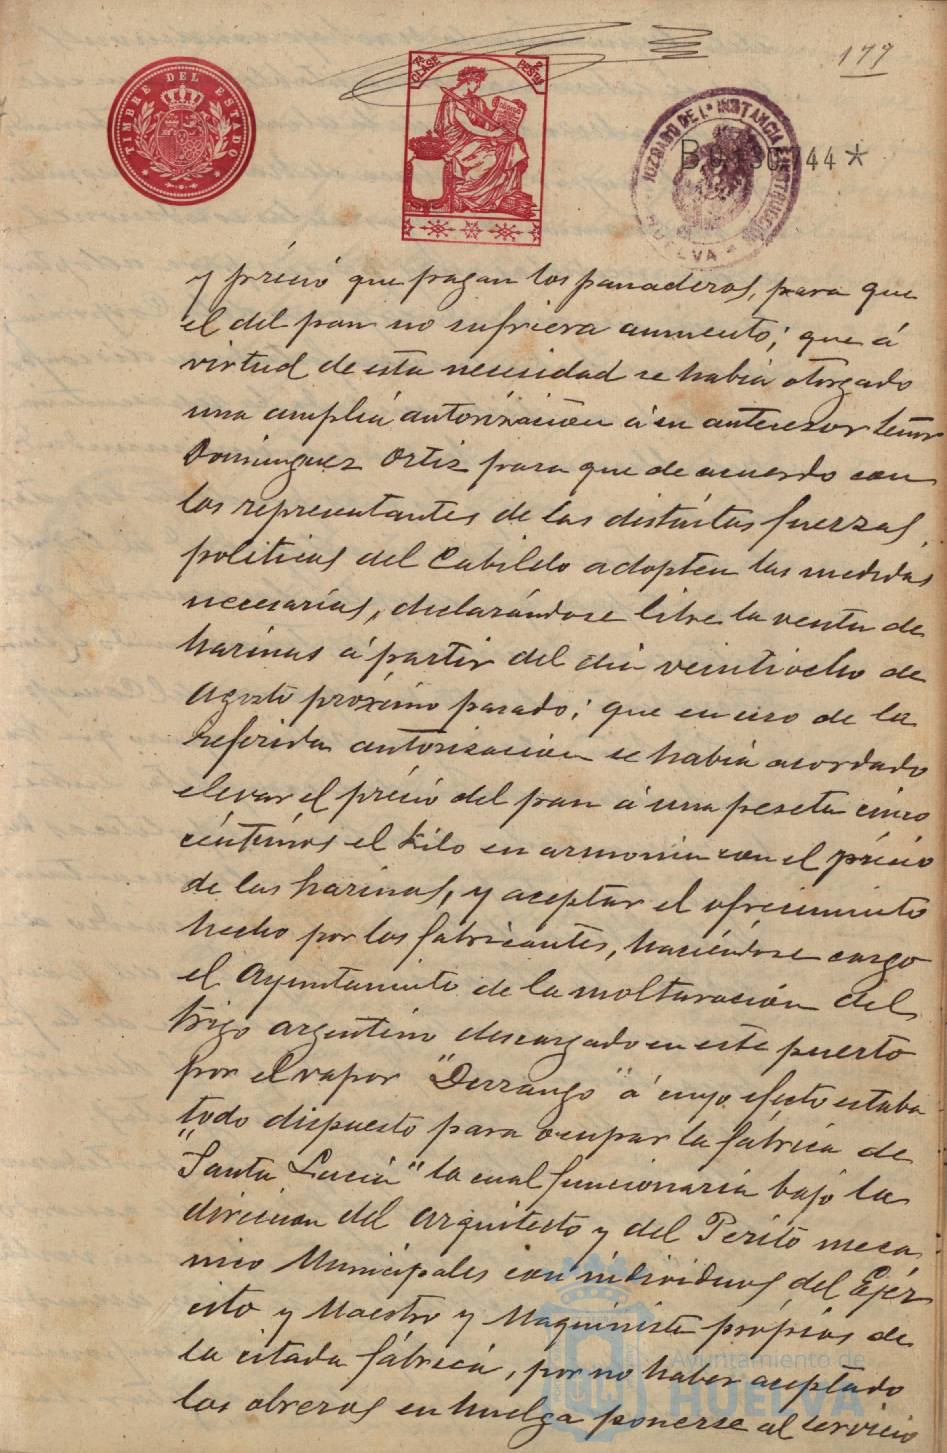 177
TIMBRE DEL ESTADO
7ª CLASE
2 PESTAS
JUZGADO DE 1ª INSTANCIA E INSTRUCCION
HUELVA
B. 44*
y précio que pagan los panaderos, para que
el del pan no sufriera aumento; que á
virtud de esta necesidad se habia otorgado
una ámplia autorización á su antecesor Señor
Dominguez Ortiz para que de acuerdo con
los representantes de las distintas fuerzas
politicas del Cabildo adopten las medidas
necesarias, declarándose libre la venta de
harinas á partir del dia veintiocho de
Agosto próximo pasado; que en uso de la
referida autorización se habia acordado
elevar el précio del pan á una peseta cinco
céntimos el kilo en armonia con el précio
de las harinas, y aceptar el ofrecimiento
hecho por los fabricantes, haciéndose cargo
el Ayuntamiento de la molturación del
trigo argentino descargado en este puerto
por el vapor "Durango" á cuyo efecto estaba
todo dispuesto para ocupar la fábrica de
"Santa Lucia" la cual funcionaria bajo la
direccion del Arquitecto y del Perito mecá
nico Municipales con individuos del Ejér
cito y Maestro y Maquinista própios de
la citada fábrica, por no haber aceptado
los obreros en huelga ponerse al servicio
Ayuntamiento de
HUELVA